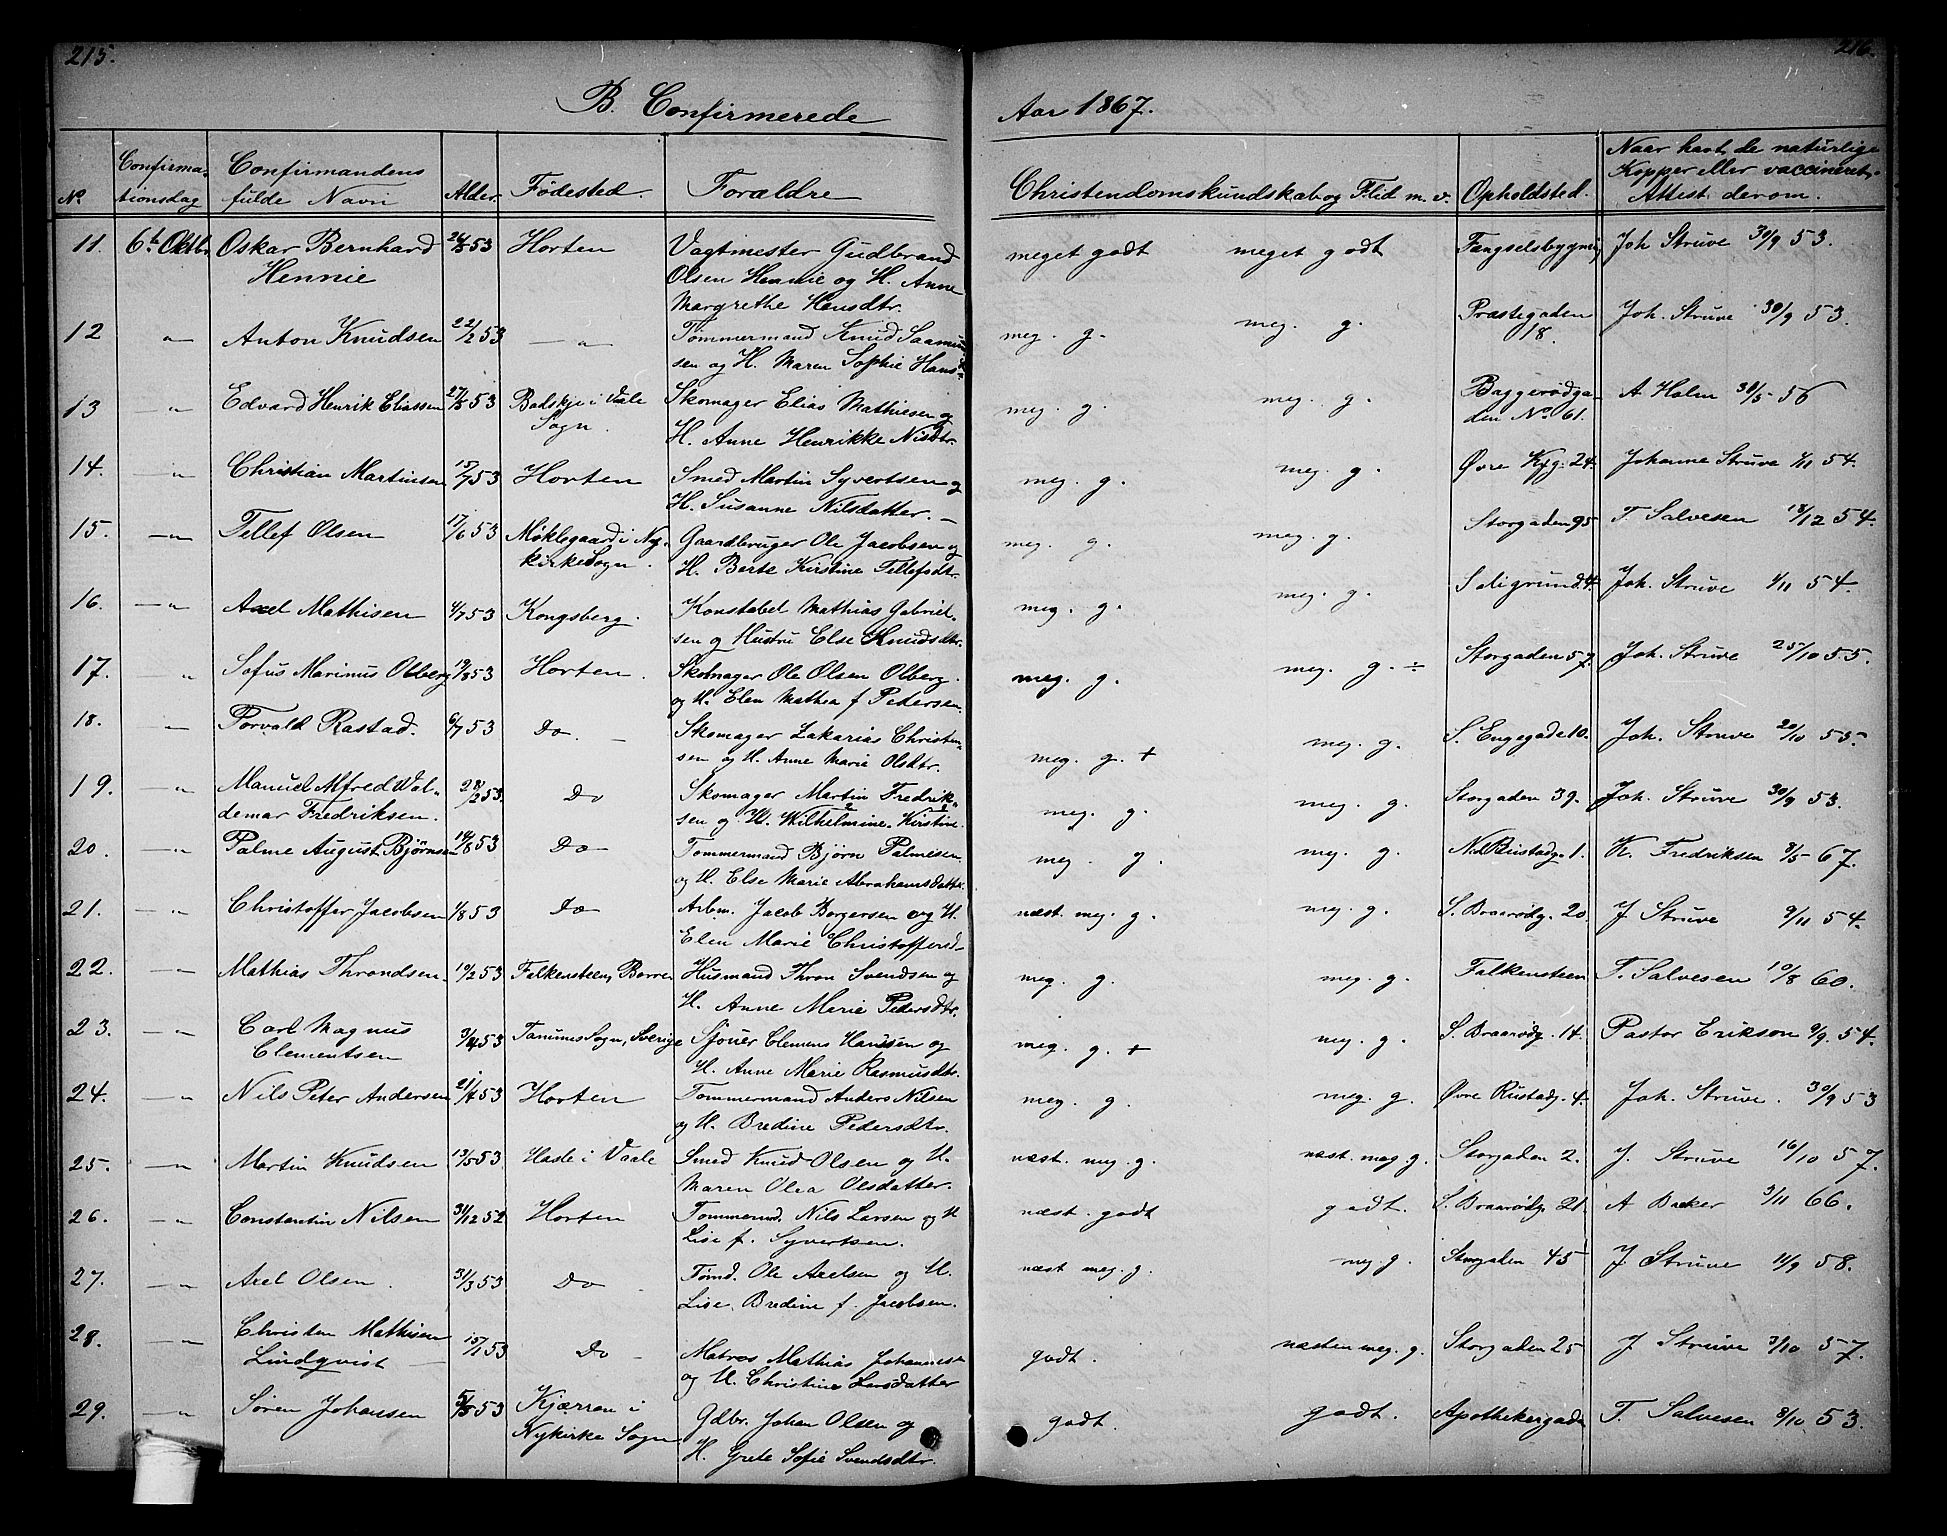 215.
216.
B. Confirmerede
Aar 1867.
No
Confirma-
tionsdag
Confirmandens
fulde Navn
Alder
Fødested.
Forældre
Christendomskundskab og Flid m. v.
Opholdsted.
Naar havt de naturlige
Kopper eller vaccineret,
Attest derom.
11. 6te Oktbr Oskar Bernhard 53 Horten Vagtmester Gudbrand meget godt meget godt Fængselsbygning Joh Struve 30/9 53.
Hennie Olsen Hennie og H. Anne
Margrethe Hansdtr.
12 " Anton Knudsen 22/2 53 — " Tømmermand Knud meg. g. meg. g. Præstegaden Joh. Struve 30/9 53.
sen og H. Maren Sophie Hans- 18.
13 " Edvard Henrik Eliassen 27/5 53 Badskje i Vaale Skomager Elias Mathiesen og meg. g. meg. g. Baggerødga- A Holm 30/5 56
Sogn. H. Anne Henrikke Nilsdtr. den No 61.
14. — " Christian Martinsen 15/7 53 Horten Smed Martin Syvertsen og meg. g. meg. g. Øvre 24. Johanne Struve 1/11 54.
H. Susanne Nilsdatter. —
15. — " Tellef Olsen 17/6 53 Møklegaard i Ny- Gaardbruger Ole Jacobsen og meg. g. meg. g. Storgaden 95 T. Salvesen 18/12 54.
kirke Sogn. H. Berte Kirstine Tellefsdtr.
16. — " Axel Mathisen 4/7 53 Kongsberg. Konstabel Mathias Gabriel- meg. g. meg. g. Joh. Struve 1/11 54.
sen og Hustru Else Knudsdtr.
17. " Sofus Marinus Olberg 19/8 53 Horten. Skomager Ole Olsen Olberg. meg. g. meg. g. ÷ Storgaden 57. Joh. Struve 25/10 55.
og H. Elen Mathea f Pedersen.
18. — " Torvald Rastad. 6/7 53 Do. — Skomager Zakarias Christen- meg. g. + meg. g. S. Engegade 10. Joh. Struve 20/10 55.
sen og H. Anne Marie Olsdtr.
19. — " Manuel Alfred Val- 28/2 53. Do Skomager Martin Fredrik- meg. g. meg. g. Storgaden 39. Joh. Struve 30/9 53.
demar Fredriksen. sen og H. Wilhelmine Kirstine.
20. — " Palme August Bjørnsen 14/8 53 Do — Tømmermand Bjørn Palmesen meg. g. meg. g. 1. K. Fredriksen 8/5 67.
og H. Else Marie Abrahamsdatter.
21. — " Christoffer Jacobsen 1/8 53 Do — Arbm. Jacob Borgersen og H. næst. meg. g. meg. g. S. Braarødg. 20. J Struve 9/11 54.
Elen Marie Christoffersd-
22. — " Mathias Throndsen. 10/2 53 Falkensteen, Borre Husmand Thron Svendsen og meg. g. meg. g. Falkensteen T. Salvesen 10/8 60.
H. Anne Marie Pedersdtr.
23. — " Carl Magnus 3/4 53 Tanums Sogn, Sverige Sjouer Clemens Hansen og meg. g. + meg. g. S. Braarødg. 14. Pastor Erikson 9/9. 54.
Clementsen H. Anne Marie Rasmusdtr.
24. — " Nils Peter Andersen 53 Horten Tømmermand Anders Nilsen meg. g. meg. g. Øvre Rustadg. 4. Joh. Struve. 30/9 53
og H. Bredine Pedersdtr.
25. — " Martin Knudsen 13/5 53 Hasle i Vaale Smed Knud Olsen og H. næst. meg. g. næst. meg g. Storgaden 2. J. Struve 16/10 57.
Maren Olea Olsdatter.
26. — " Constantin Nilsen 31/12 52 Horten Tømmermd. Nils Larsen og H næst. godt godt. S. Braarødg. 21. A Backer 3/11 66.
Lise f. Syvertsen.
27. — " Axel Olsen. 31/3 53 Do Tømd. Ole Axelsen og H. næst meg. g. meg g. Storgaden 45 J Struve 11/9 58.
Lise Bredine f. Jacobsen.
28. — " Christen Mathisen 15/1 53 Do — Matros Mathias Johannes- godt. næsten meg. g. Storgaden 25 J Struve 3/10 57.
Lindqvist — og H. Christine Larsdatter
29. — " Søren Johansen 53 Kjærran i Gdbr. Johan Olsen og godt. godt. Apothekergaden T. Salvesen 8/10 53.
Nykirke Sogn H. Grete Sofie Svendsdtr.